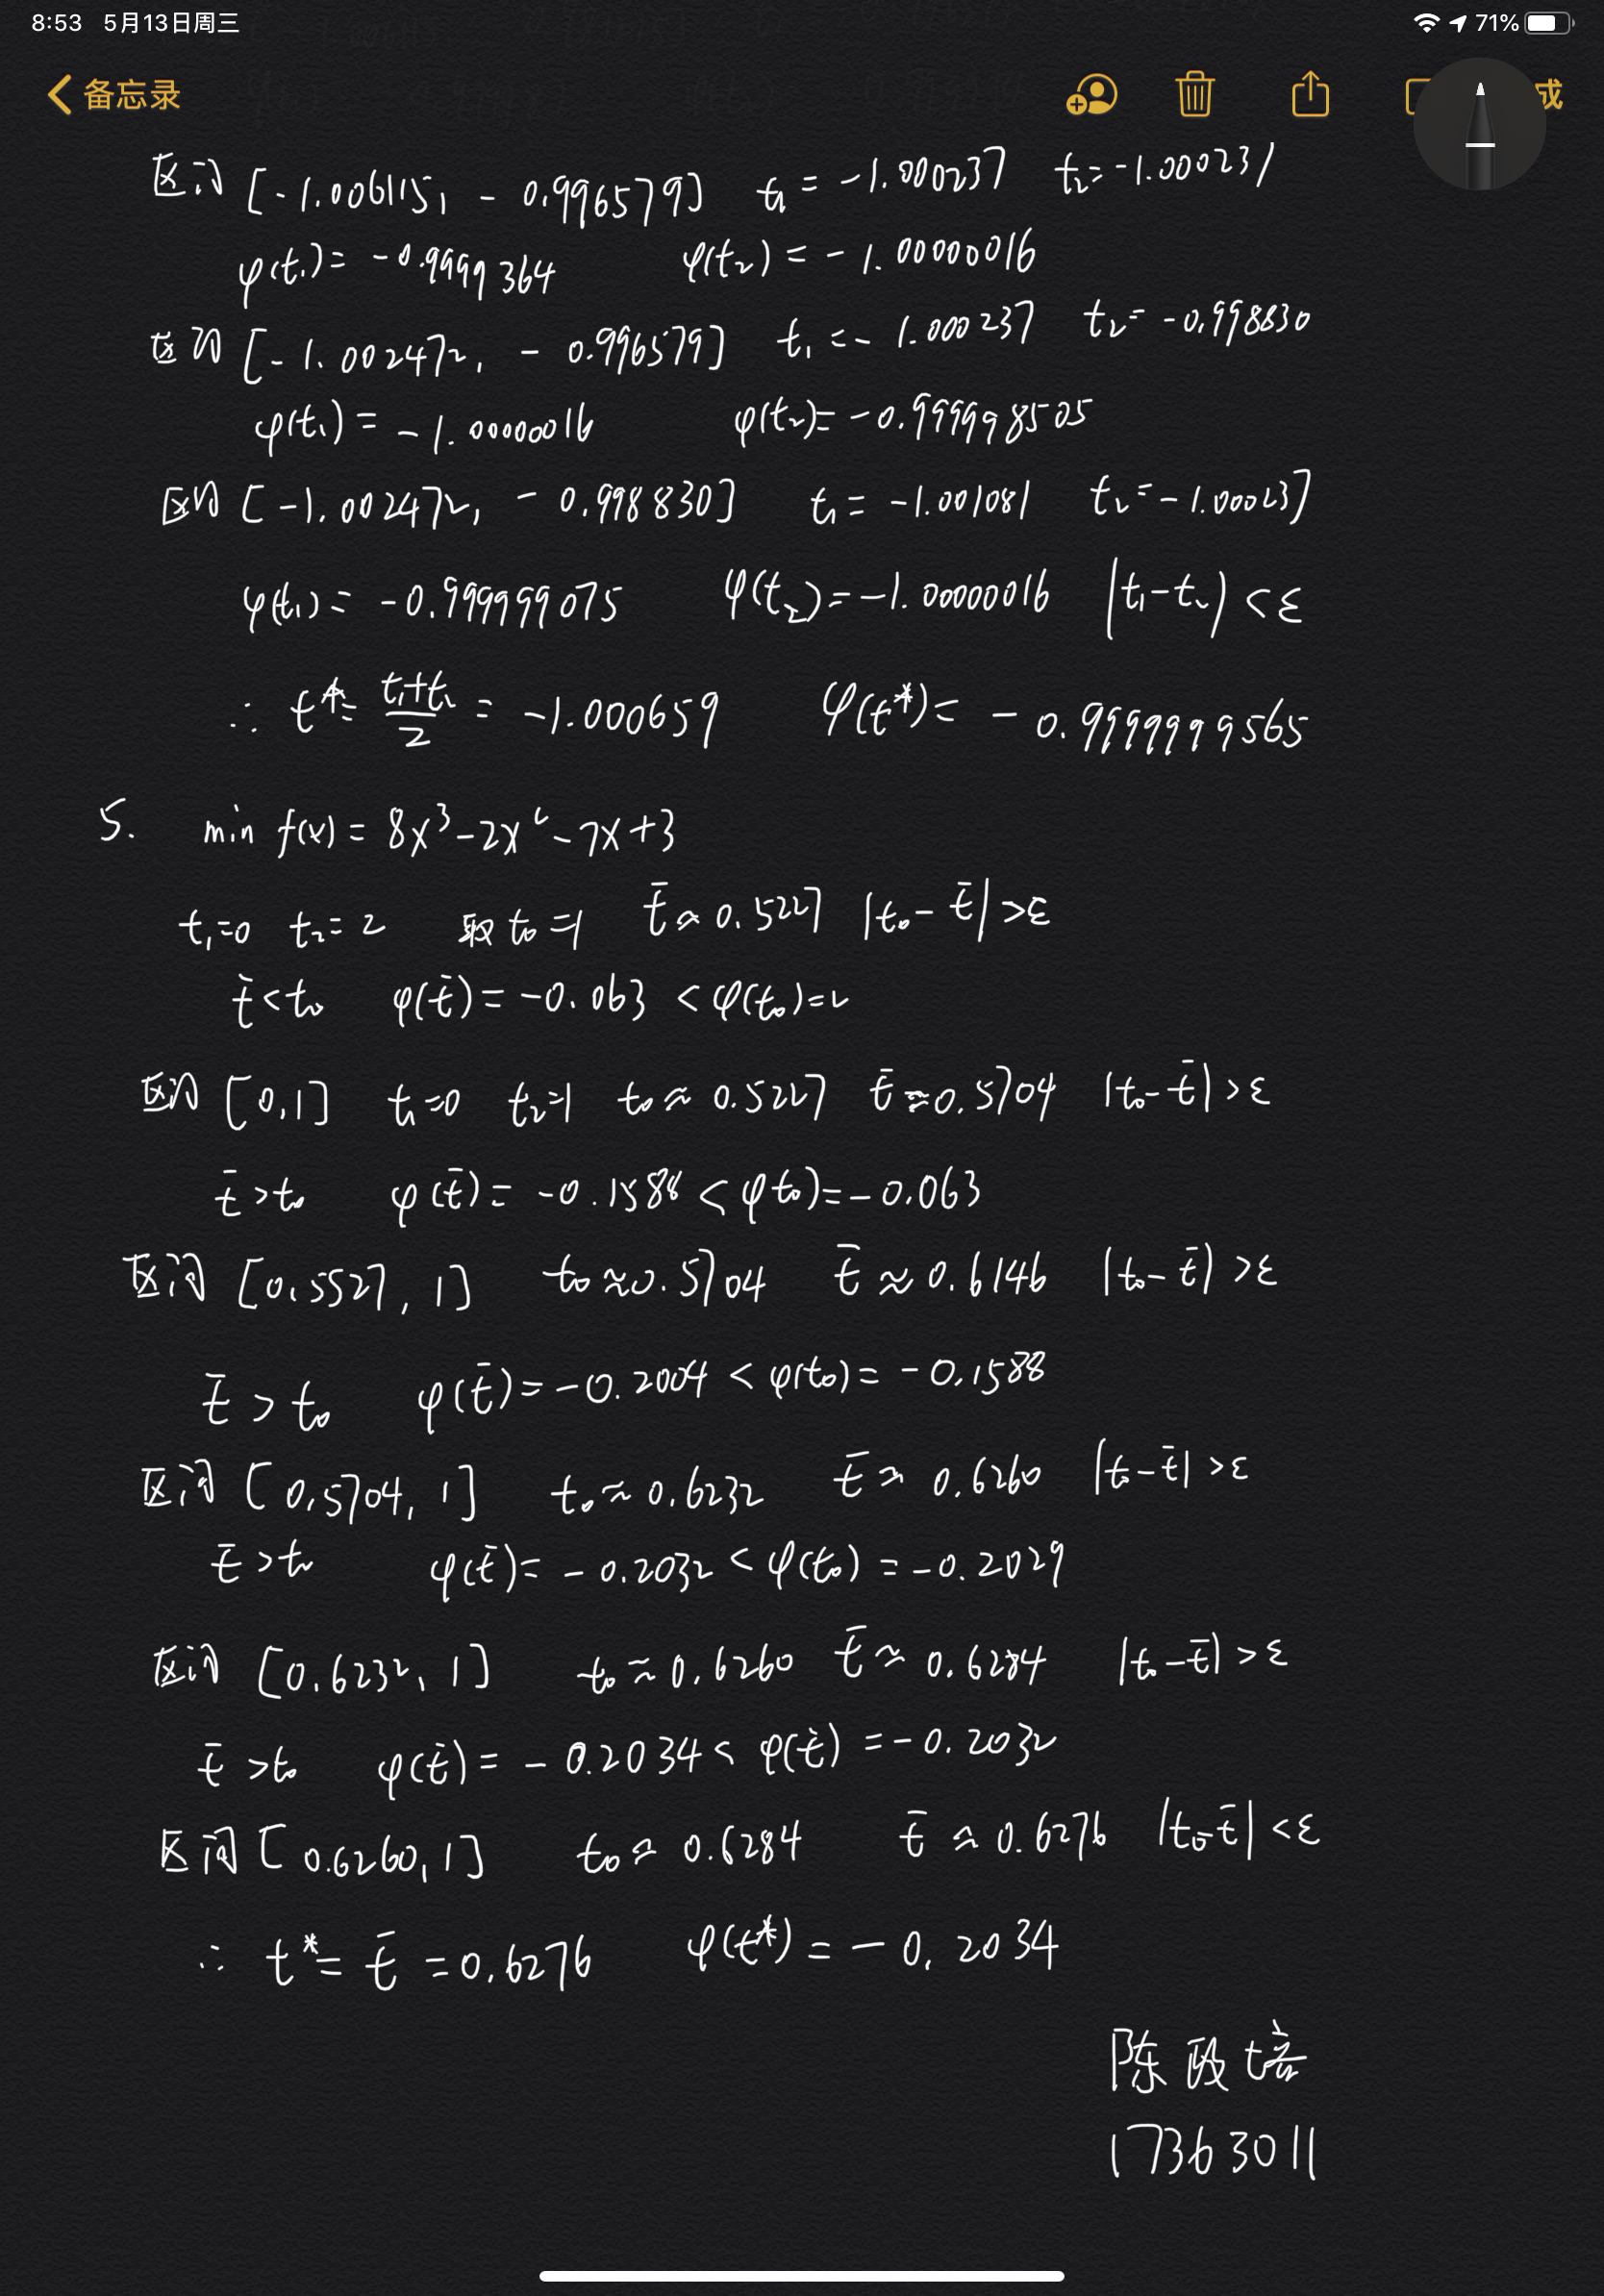 8:53 5月13日周三 71%
备忘录 成
区间 [-1.006115, -0.996579] t₁ = -1.000237 t₂ = -1.000237
φ(t₁) = -0.9999364 φ(t₂) = -1.00000016
区间 [-1.002472, -0.996579] t₁ = -1.000237 t₂ = -0.998830
φ(t₁) = -1.00000016 φ(t₂) = -0.999998505
区间 [-1.002472, -0.998830] t₁ = -1.001081 t₂ = -1.000237
φ(t₁) = -0.999999075 φ(t₂) = -1.00000016 |t₁-t₂| < ε
∴ t* = (t₁+t₂)/2 = -1.000659 φ(t*) = -0.9999999565
5. min f(x) = 8x³-2x²-7x+3
t₁=0 t₂=2 取 t₀=1 t̄≈0.5227 |t₀-t̄|>ε
t̄<t₀ φ(t̄) = -0.063 < φ(t₀)=2
区间 [0,1] t₁=0 t₂=1 t₀≈0.5227 t̄≈0.5704 |t₀-t̄|>ε
t̄>t₀ φ(t̄) = -0.1588 < φ(t₀) = -0.063
区间 [0.5527, 1] t₀≈0.5704 t̄≈0.6146 |t₀-t̄|>ε
t̄>t₀ φ(t̄) = -0.2004 < φ(t₀) = -0.1588
区间 [0.5704, 1] t₀≈0.6232 t̄≈0.6260 |t₀-t̄|>ε
t̄>t₀ φ(t̄) = -0.2032 < φ(t₀) = -0.2029
区间 [0.6232, 1] t₀≈0.6260 t̄≈0.6284 |t₀-t̄|>ε
t̄>t₀ φ(t̄) = -0.2034 < φ(t̄) = -0.2032
区间 [0.6260, 1] t₀≈0.6284 t̄≈0.6276 |t₀-t̄|<ε
∴ t* = t̄ = 0.6276 φ(t*) = -0.2034
陈政培
17363011